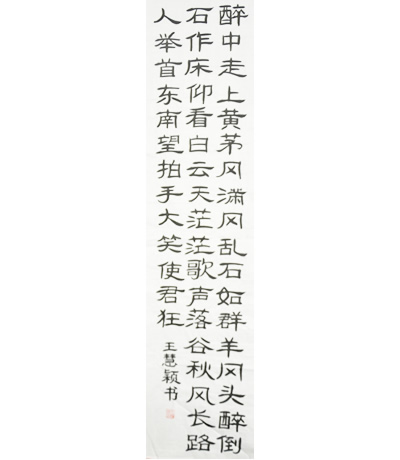 醉中走上黄茅冈满冈乱石如群羊冈头醉倒
石作床仰看白云天茫茫歌声落谷秋风长路
人举首东南望拍手大笑使君狂
王慧颖书